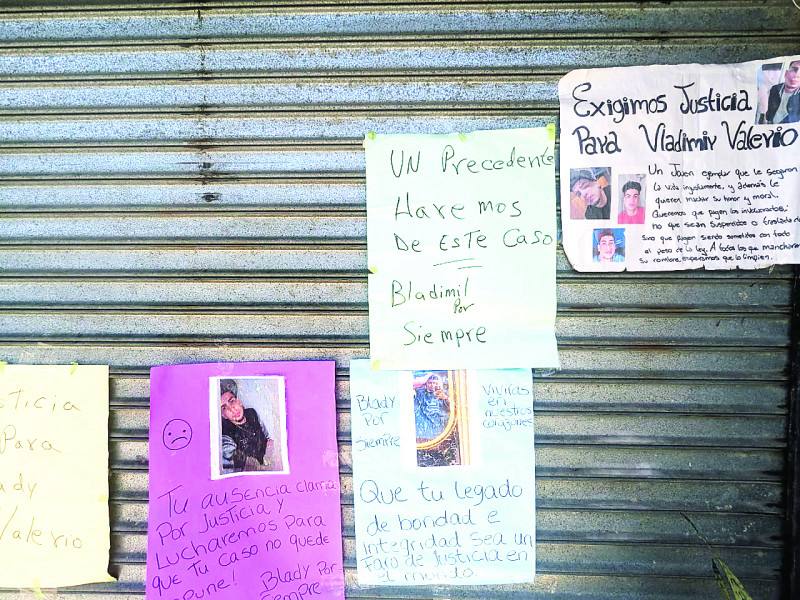 Exigimos Justicia
Para Vladimir Valerio
Un Joven ejemplar que le segaron
la vida injustamente, y además le
quieren manchar su honor y moral.
Queremos que paguen los involucrados;
no que sean suspendidos o
Sino que paguen siendo sometidos con todo
el peso de la ley. A todos los que mancharon
su nombre, esperamos que lo limpien.
UN Precedente
Haremos
De Este Caso
Bladimil
Por
Siempre
sticia
Para
ady
Valerio
Tu ausencia clama
Por Justicia y
Lucharemos Para
que Tu Caso no quede
mpune!
Blady Por
Siempre
Blady
Por
Siempre
Vivirás
en
nuestros
corazones
Que tu legado
de bondad e
integridad sea un
Faro de Justicia en
el mundo.